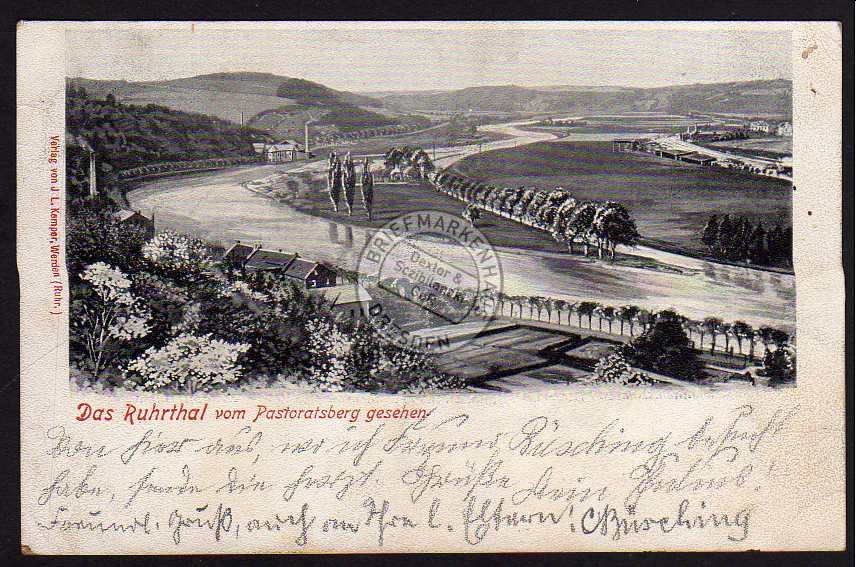 Verlag von J. L. Kemper, Werden (Ruhr.)
BRIEFMARKENHAUS
Dexter &
Sczibilanski
GbR
DRESDEN
Das Ruhrthal vom Pastoratsberg gesehen.
Von hier aus, wo ich Freund Büsching besucht
habe, sende die herzl. Grüße Dein
Freundl. Gruß, auch an Ihre l. Eltern! Büsching